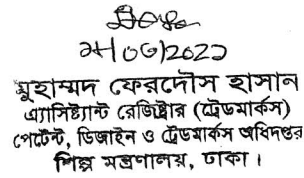 মুহাম্মদ ফেরদৌস হাসান
এ্যাসিষ্ট্যান্ট রেজিষ্ট্রার (ট্রেডমার্কস)
পেটেন্ট, ডিজাইন ও ট্রেডমার্কস অধিদপ্তর
শিল্প মন্ত্রণালয়, ঢাকা।